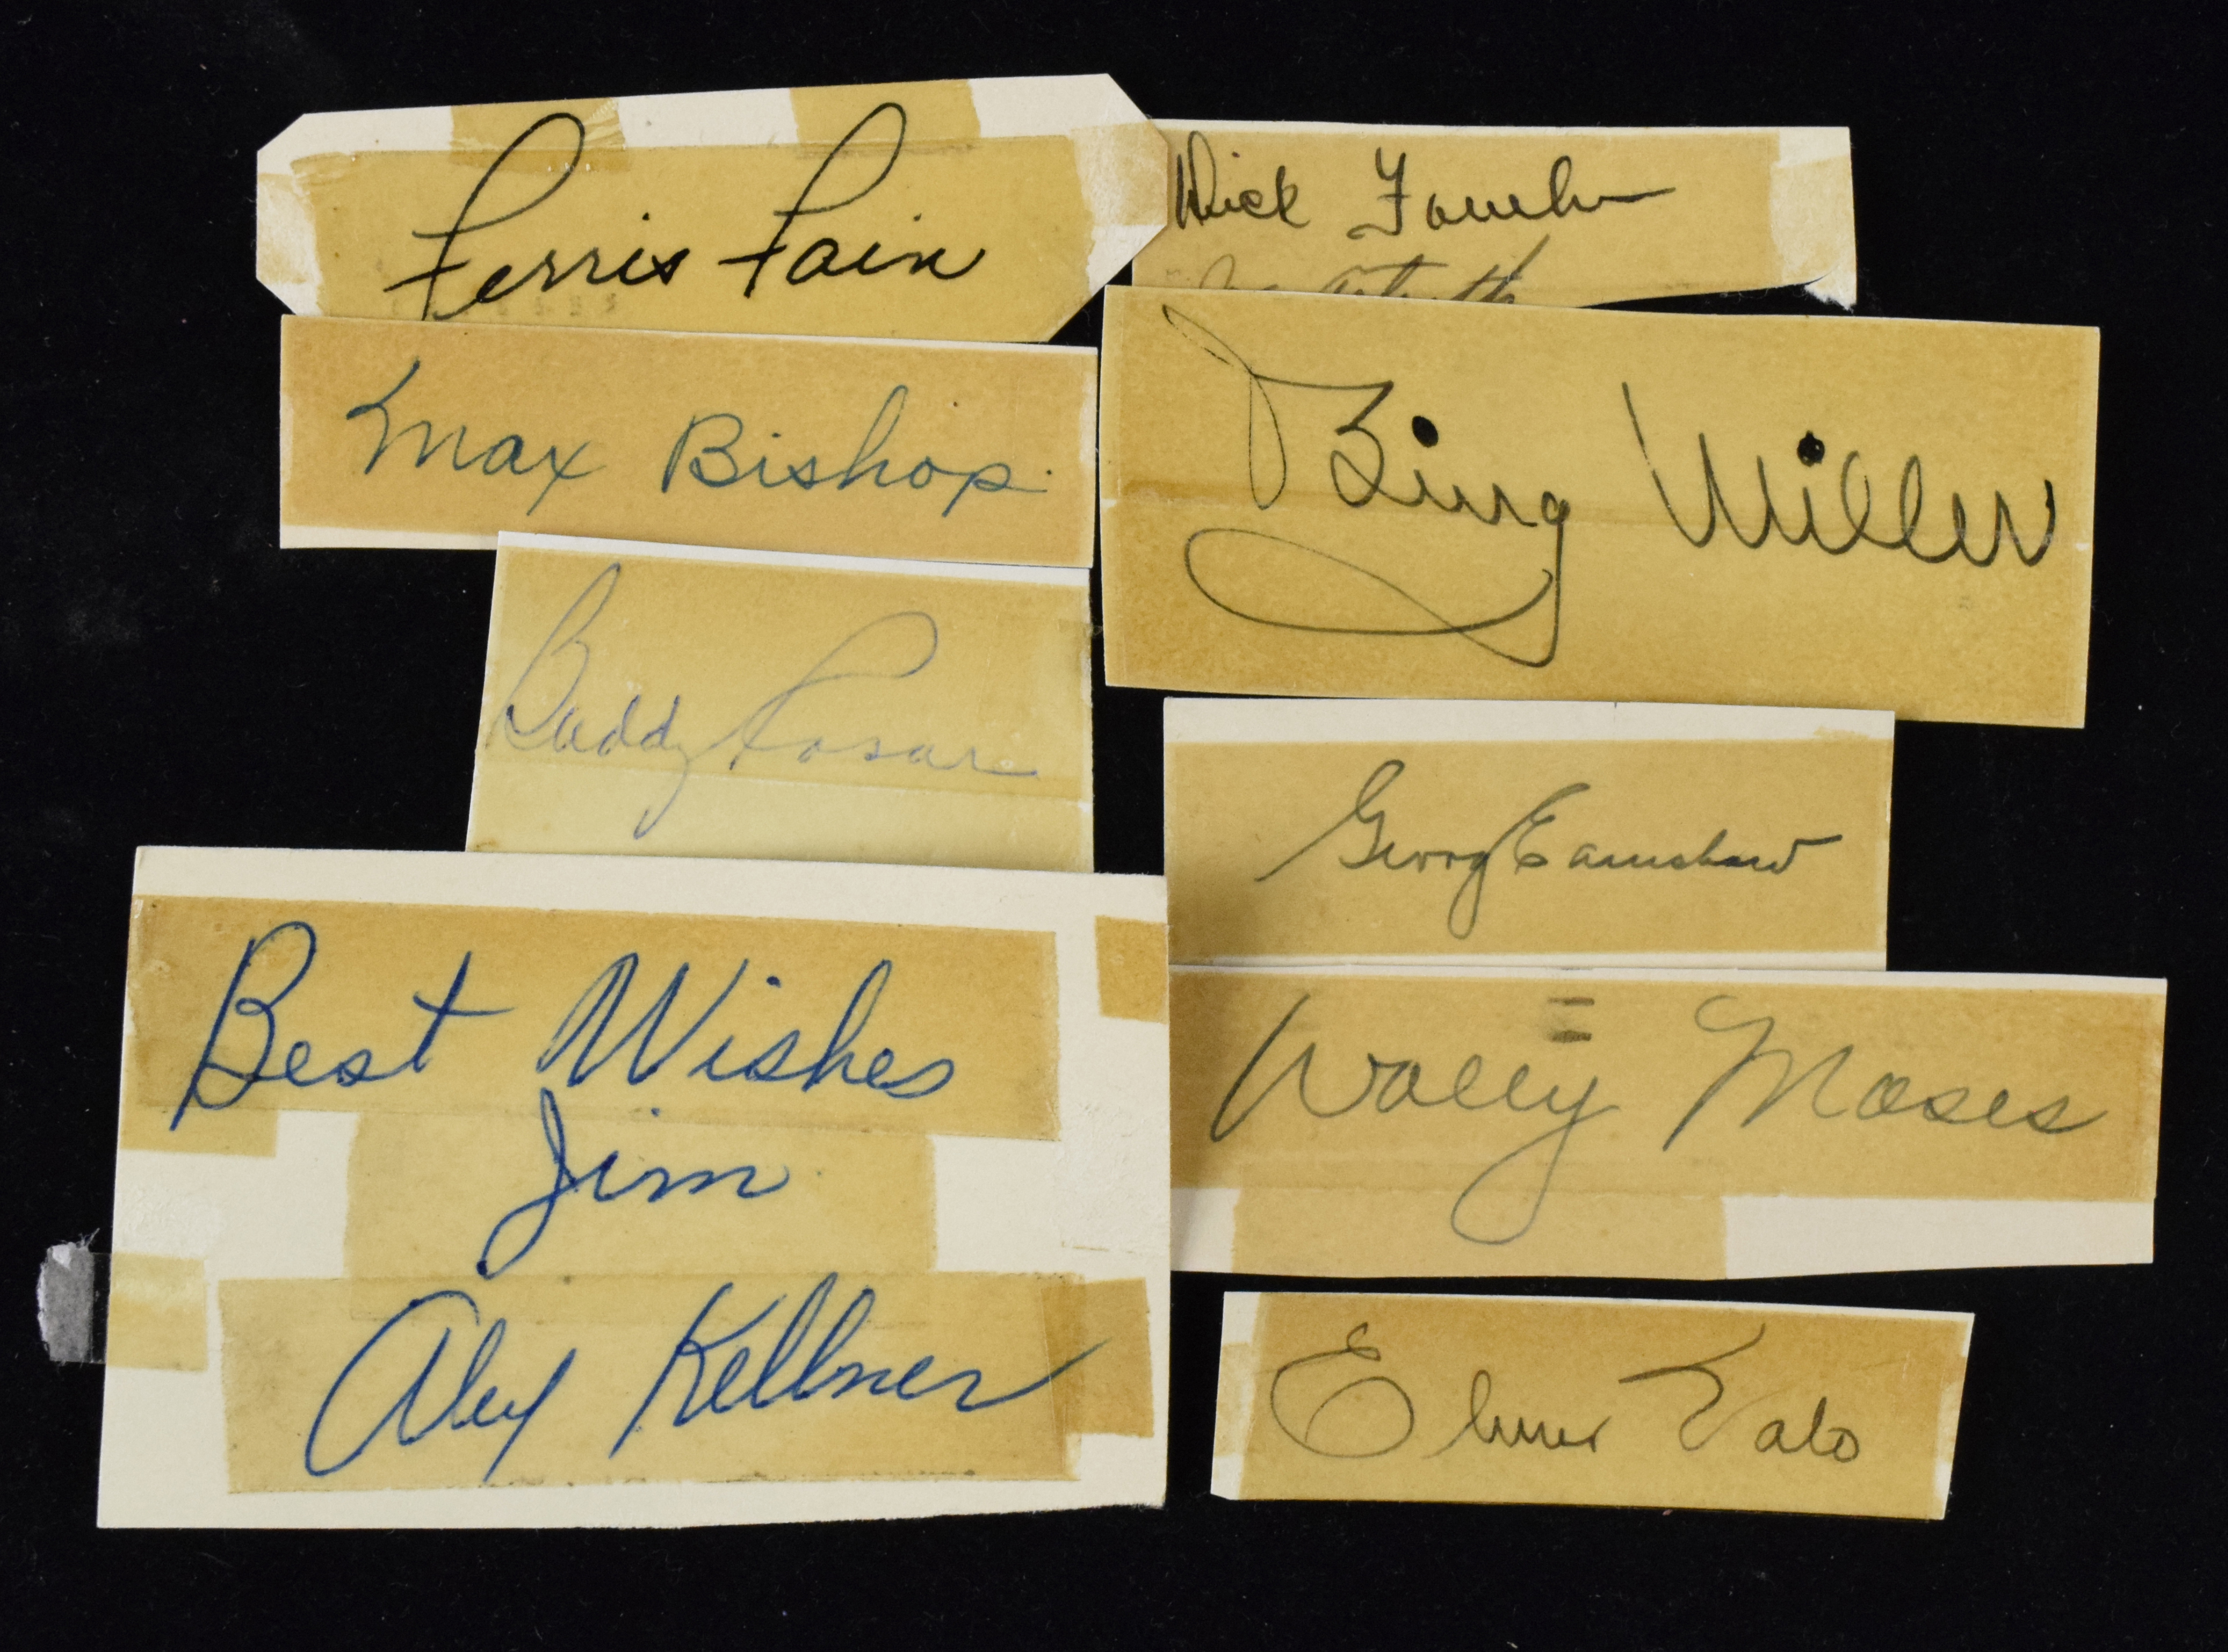 Ferris Fain
Dick Fowler
Max Bishop
Bing Miller
Buddy Rosar
George Earnshaw
Best Wishes
Jim
Alex Kellner
Wally Moses
Elmer Valo